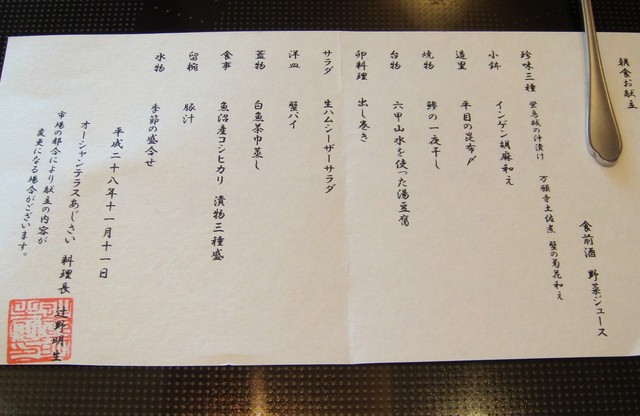 朝食お献立
食前酒 野菜ジュース
珍味三種 蛍烏賊の沖漬け 万願寺土佐煮 蟹の菊花和え
小鉢 インゲン胡麻和え
造里 平目の昆布〆
焼物 鯵の一夜干し
台物 六甲山水を使った湯豆腐
卵料理 出し巻き
サラダ 生ハムシーザーサラダ
洋皿 蟹パイ
蓋物 白魚茶巾蒸し
食事 魚沼産コシヒカリ 漬物三種盛
留椀 豚汁
水物 季節の盛合せ
平成二十八年十一月十一日
オーシャンテラスあじさい 料理長 辻野明生
市場の都合により献立の内容が
変更になる場合がございます。